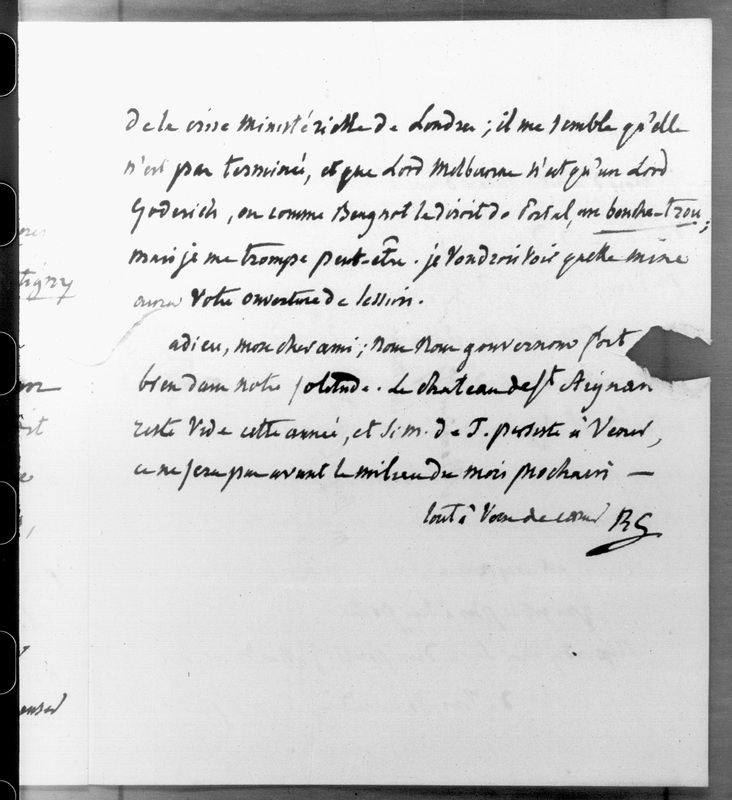 de la crise ministérielle de Londres ; il me semble qu'elle
n'est pas terminée, et que Lord Melbourne n'est qu'un Lord
Goderich, ou comme Beugnot le disoit de Portal, un bouche-trou ;
mais je me trompe peut-être. je voudrois voir quelle mine
aura votre ouverture de session.
adieu, mon cher ami ; nous nous gouvernons fort
bien dans notre solitude. Le chateau de St Aignan
reste vide cette année, et si m. de T. persiste à venir,
ce ne sera pas avant le milieu du mois prochain —
tout à vous de coeur RG
tigny